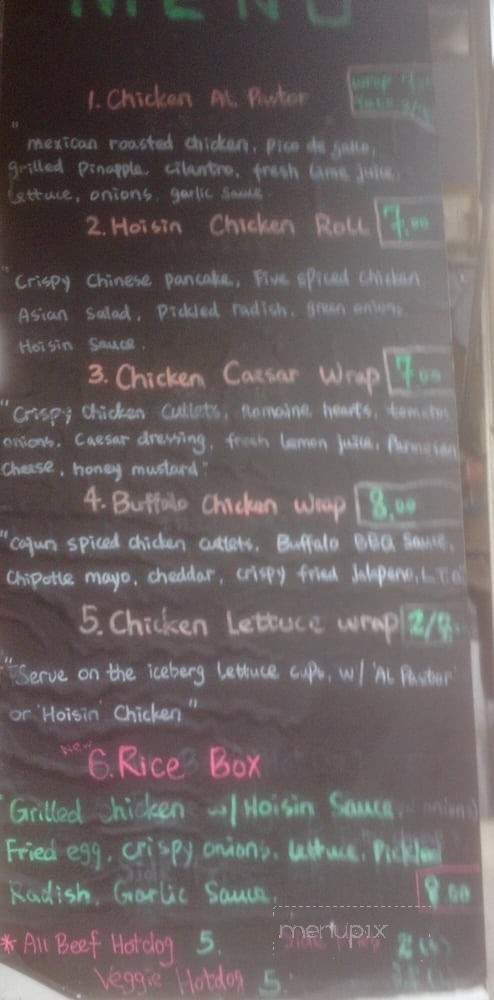 MENU
1. Chicken AL Pastor
"mexican roasted chicken, pico de gallo,
grilled Pineapple, cilantro, fresh lime juice,
Lettuce, onions, garlic sauce
2. Hoisin Chicken Roll 7.00
"Crispy Chinese pancake, Five spiced chicken
Asian Salad, Pickled radish, green onions,
Hoisin Sauce.
3. Chicken Caesar Wrap 7.00
"Crispy Chicken Cutlets, Romaine hearts, tomatos
onions, Caesar dressing, fresh lemon juice, Parmesan
Cheese, honey mustard"
4. Buffalo Chicken Wrap 8.00
"Cajun spiced chicken cutlets, Buffalo BBQ Sauce,
Chipotle mayo, cheddar, crispy fried Jalapeno,
5. Chicken Lettuce Wrap
"Serve on the iceberg Lettuce cups, w/ 'AL Pastor'
or 'Hoisin' Chicken"
New
6. Rice Box
Grilled chicken w/ Hoisin Sauce,
Fried egg, crispy onions, lettuce, Pickled
Radish, Garlic Sauce,
* All Beef Hotdog 5.
Veggie Hotdog 5.
menupix